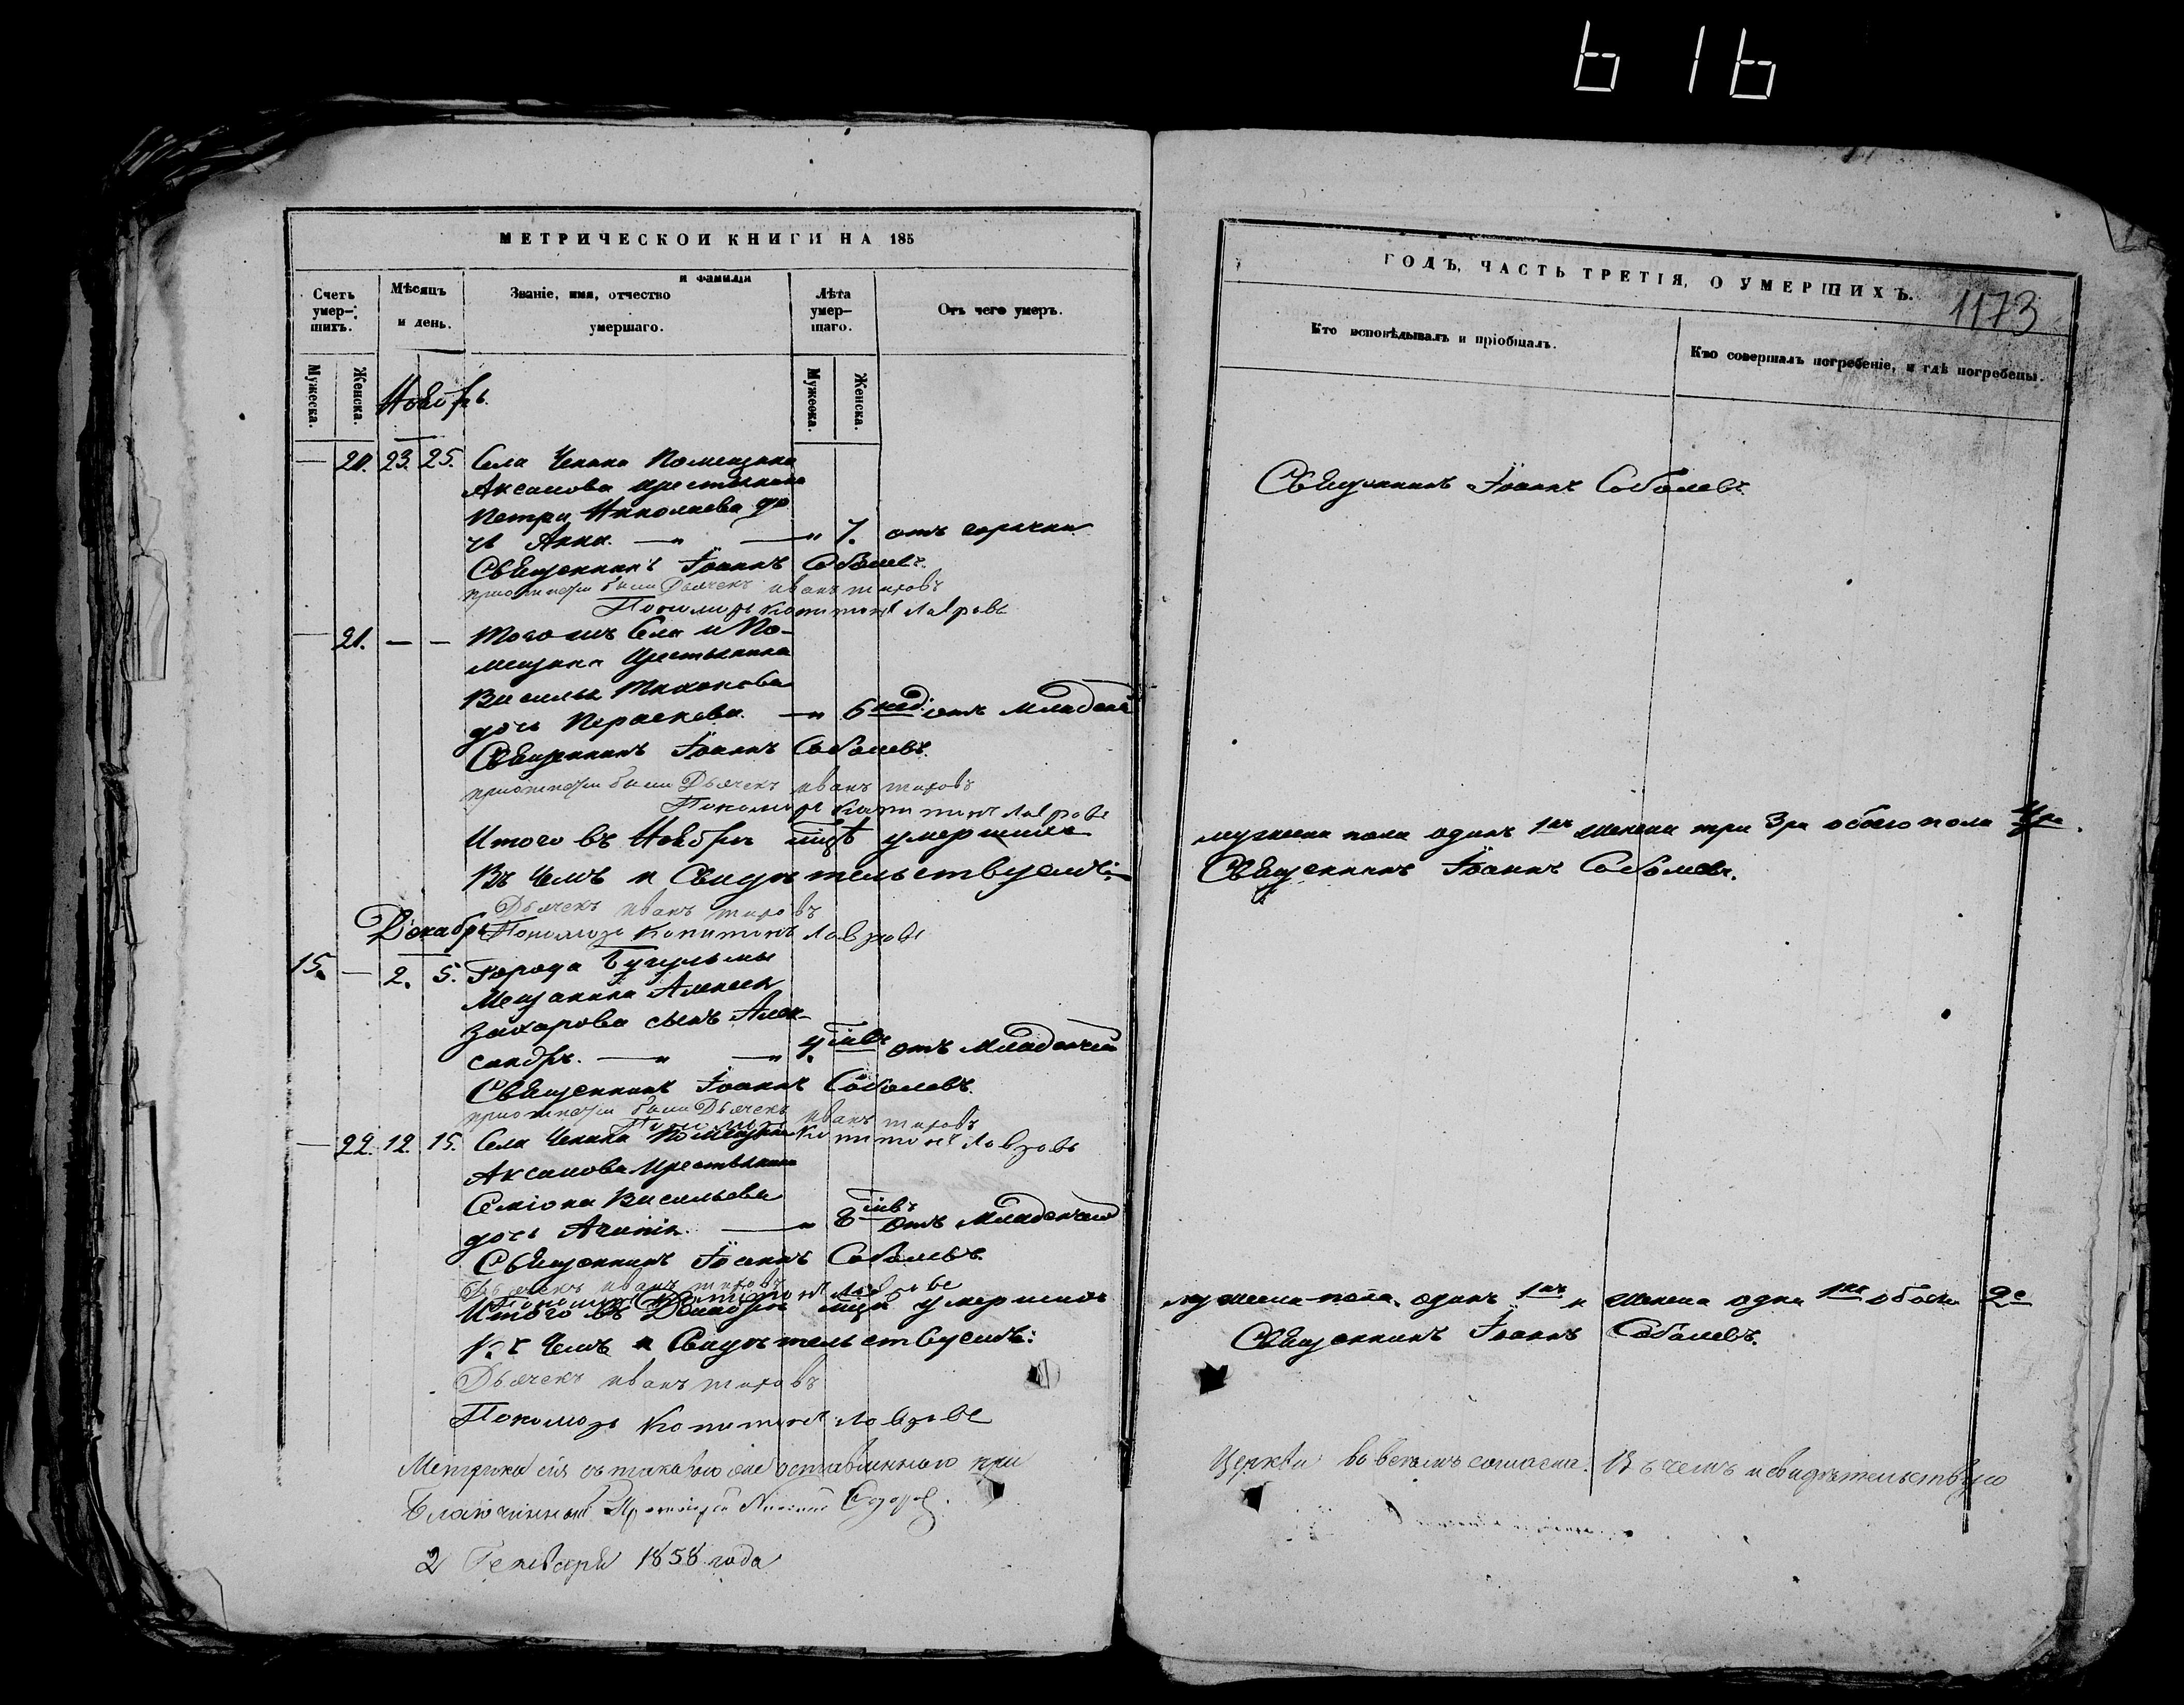 616
МЕТРИЧЕСКОЙ КНИГИ НА 185
Счетъ умер-шихъ.
Мѣсяцъ и день.
Званіе, имя, отчество и фамилія умершаго.
Лѣта умер-шаго.
Отъ чего умеръ.
Мужеска.
Женска.
Мужеска.
Женска.
Ноябрь.
— 20. 23. 25. Села Чекана Помещика
Аксакова крестьянина
Петра Николаева до
чь Анна. — „ — „ 7. отъ горячки
Священникъ Іоаннъ Соболевъ.
при отпетіи были Дьячекъ иванъ титовъ
Пономарь Капитонъ Лавровъ
— 21. — — Того жъ Села и По-
мещика Крестьянина
Василья Тихонова
дочь Параскева. — „ 6 нед. отъ младенч
Священникъ Іоаннъ Соболевъ.
при отпетіи были Дьячекъ иванъ титовъ
Пономарь Капитонъ Лавровъ
Итого въ Ноябрѣ мцѣ умершихъ
Въ чемъ и Свидѣтельствуемъ:
Дьячекъ иванъ титовъ
Пономарь Капитонъ Лавровъ
Декабрь
15. — 2. 5. Города Бугульмы
Мещанина Алексея
Захарова сынъ Алек-
сандръ. — „ — „ отъ младенчей
Священникъ Іоаннъ Соболевъ.
при отпетіи были Дьячекъ иванъ титовъ
Пономарь Капитонъ Лавровъ
— 22. 12. 15. Села Чекана Помещика
Аксакова Крестьянина
Семіона Васильева
дочь — „ 8 отъ младенчей
Священникъ Іоаннъ Соболевъ.
Дьячекъ иванъ титовъ
Пономарь Капитонъ Лавровъ
Итого въ Декабрѣ мцѣ умершихъ
Въ чемъ и Свидѣтельствуемъ:
Дьячекъ иванъ титовъ
Пономарь Капитонъ Лавровъ
Метрика сія съ таковою оставленною при
Благочинный Протоіерей
2 Генваря 1858 года
ГОДЪ, ЧАСТЬ ТРЕТІЯ, О УМЕРШИХЪ.
1173
Кто исповѣдывалъ и пріобщалъ.
Кто совершалъ погребеніе, и гдѣ погребены.
Священникъ Іоаннъ Соболевъ
мужеска пола одинъ 1нъ женска три 3ри обоего пола 4ре.
Священникъ Іоаннъ Соболевъ.
мужеска пола одинъ 1нъ и женска одна 1на обоего 2е
Священникъ Іоаннъ Соболевъ.
Церкви во всемъ согласна. Въ чемъ и свидѣтельствую